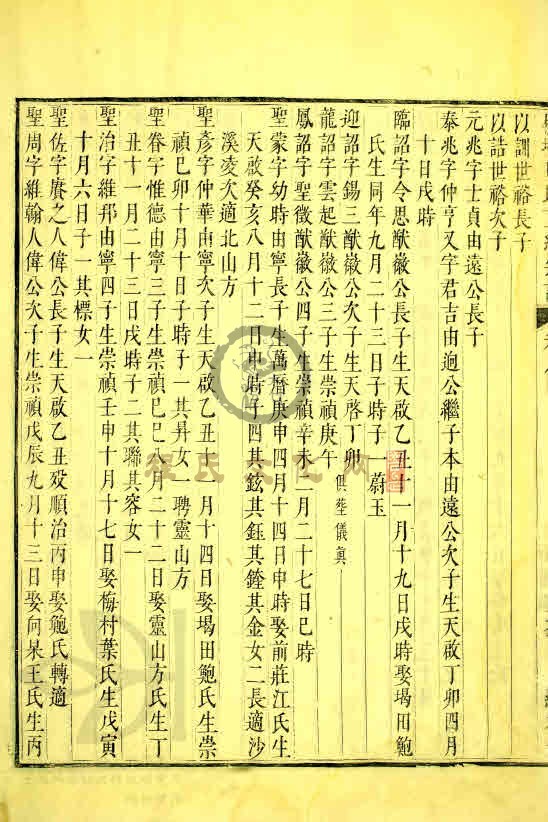 以調世裕長子
以詰世裕次子
元兆字士貞由遠公長子
泰兆字仲亨又字君吉由迥公繼子本由遠公次子生天啟丁卯四月
十日戌時
臨詔字令思猷徽公長子生天啟乙丑十一月十九日戌時娶堨田鮑
氏生同年九月二十三日子時子一蔚玉
迎詔字錫三猷徽公次子生天啓丁卯
龍詔字雲起猷徽公三子生崇禎庚午 俱葬儀真
鳳詔字聖徵猷徽公四子生崇禎辛未二月二十七日巳時
聖蒙字幼時由寧長子生萬曆庚申四月十四日申時娶前莊江氏生
天啟癸亥八月十二日申時子四其鉉其鈺其銓其金女二長適沙
溪凌次適北山方
聖彥字仲華由寧次子生天啟乙丑十一月十四日娶堨田鮑氏生崇
禎己卯十月十日子時子一其昇女一聘靈山方
聖眷字惟德由寧三子生崇禎己巳八月二十二日娶靈山方氏生丁
丑十一月二十三日戌時子二其聯其容女一
聖治字維邦由寧四子生崇禎壬申十月十七日娶梅村葉氏生戊寅
十月六日子一其標女一
聖佐字賡之人偉公長子生天啟乙丑歿順治丙申娶鮑氏轉適
聖周字維翰人偉公次子生崇禎戊辰九月十三日娶向杲王氏生丙